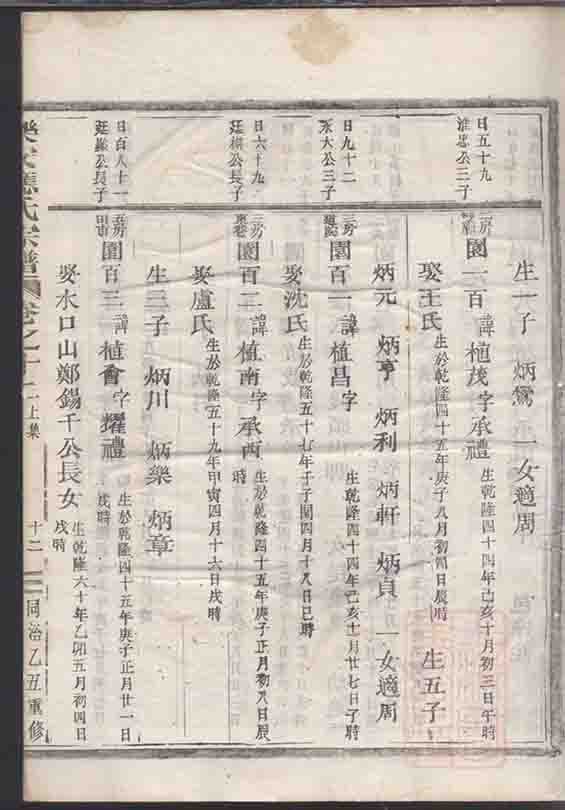 生一子 炳鸞 一女適周
日五十九
淮忠公三子
三房
園一百 諱植茂字承禮 生乾隆四十四年己亥十月初三日午時
娶王氏 生於乾隆四十五年庚子八月初四日辰時 生五子
炳元 炳亨 炳利 炳軒 炳貞 一女適周
日九十二
永大公三子
三房
園百一 諱植昌字 生乾隆四十四年己亥十一月廿七日子時
娶沈氏 生於乾隆五十七年壬子閏四月十八日巳時
日六十九
廷棋公長子
三房
園百二 諱植南字承西 生於乾隆四十五年庚子正月初八日辰時
娶盧氏 生於乾隆五十九年甲寅四月十六日戌時
生三子 炳川 炳樂 炳章
日百八十一
廷 公長子
三房
園百三 諱植會字耀禮 生於乾隆四十五年庚子正月廿一日戌時
娶水口山鄭錫千公長女 生乾隆六十年乙卯五月初四日戌時
氏宗譜 卷之十二上集 十二 同治乙丑重修